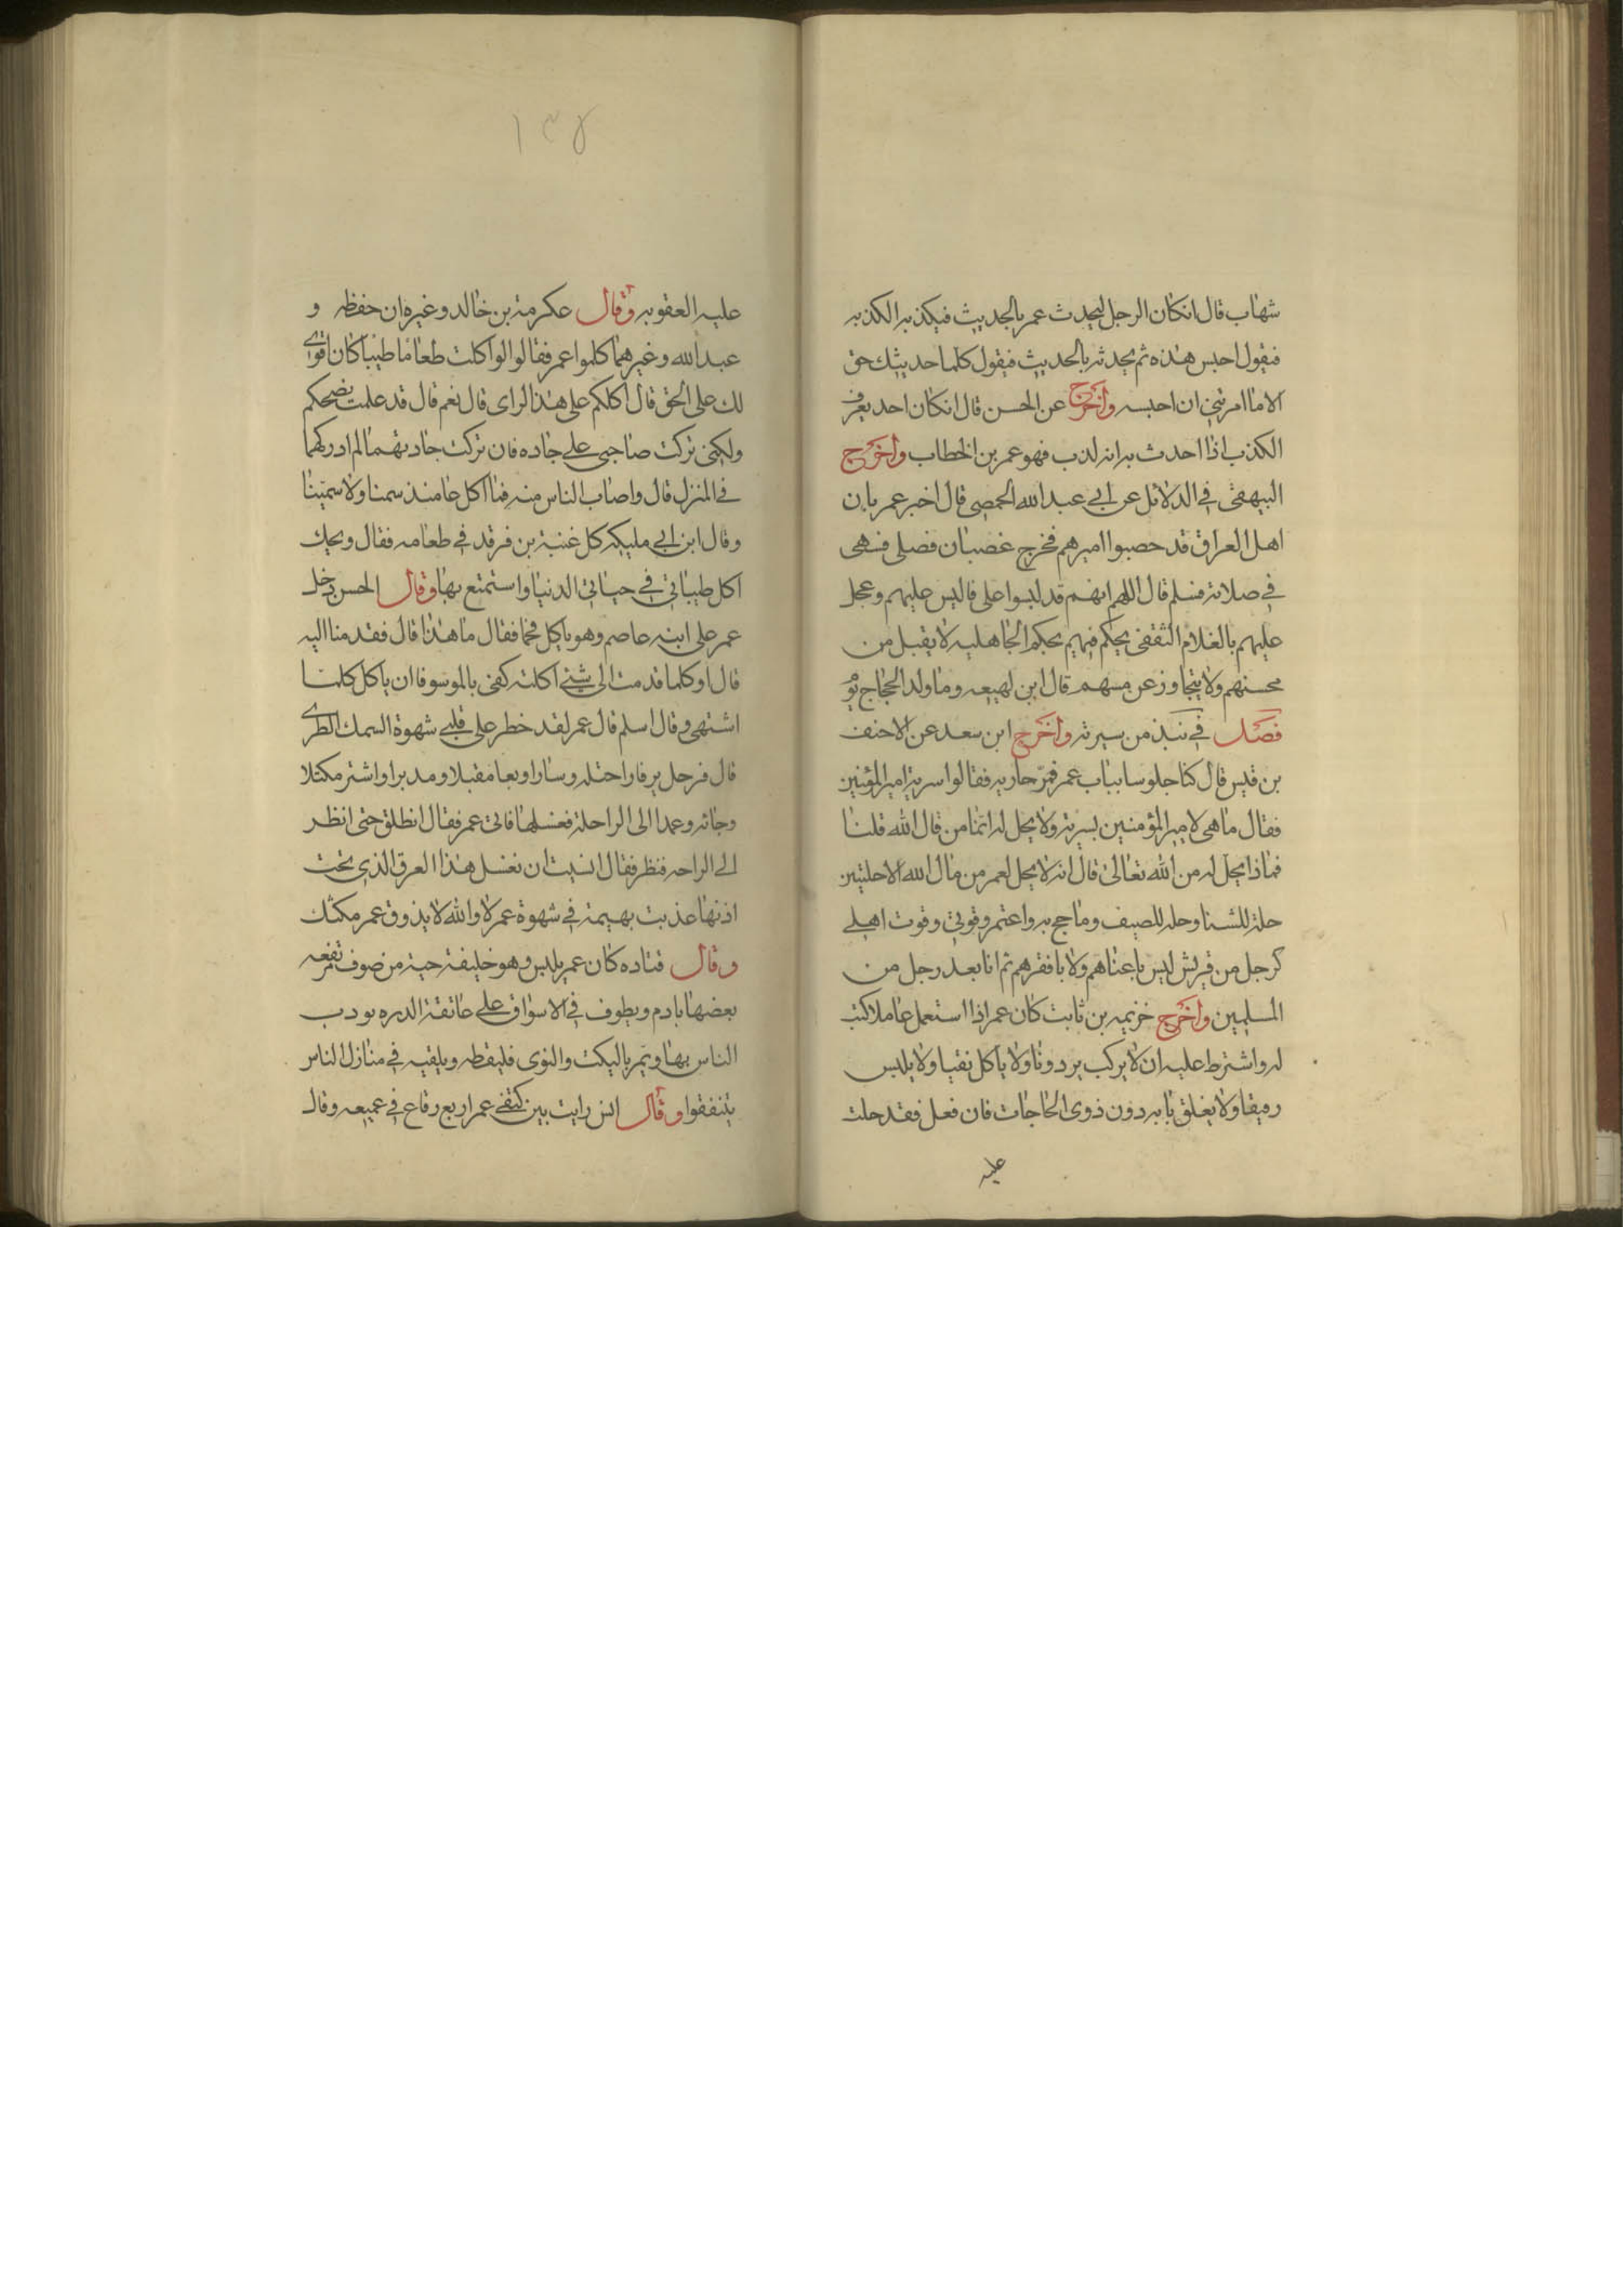 شهاب قال انكان الرجل ليحدث عمر بالحديث فيكذبه الكذبه
فيقول احبس هذه ثم يحدثه بالحديث فيقول كلما حديثك حق
الا ما امرتني ان احبسه واخرج عن الحسن قال انكان احد يعرف
الكذب اذا احدث به انه لذب فهو عمر بن الخطاب واخرج
البيهقي في الدلائل عن ابي عبد الله الحمصي قال اخبر عمر بان
اهل العراق قد حصبوا اميرهم فخرج غضبان فصلى فسهى
في صلاته فسلم قال اللهم انهم قد لبسوا على فالبس عليهم وعجل
عليهم بالغلام الثقفي يحكم فيهم بحكم الجاهليه لا يقبل من
محسنهم ولا يتجاوز عن مسهم قال ابن لهيعه وما ولد الحجاج يو
فصل في نبذ من سيرته واخرج ابن سعد عن الاحنف
بن قيس قال كنا جلوسا بباب عمر فمر جاريه فقالوا سرية امير المؤمنين
فقال ما هي لامير المؤمنين بسرية ولا يحل له انما من قال الله قلنا
فماذا يحل له من الله تعالى قال انه لا يحل لعمر من مال الله الا حلتين
حلة للشتا وحله للصيف وما حج به واعتمر وقوتي وقوت اهلي
كرجل من قريش ليس باغناهم ولا بافقرهم ثم انا بعد رجل من
المسلمين واخرج خزيمه بن ثابت كان عمر اذا استعمل عاملا كتب
له واشترط عليه ان لا يركب بردونا ولا ياكل نقيا ولا يلبس
رميقا ولا يغلق بابه دون ذوى الحاجات فان فعل فقد حلت
عليه
١٣٤
عليه العقوبه وقال عكرمة بن خالد وغيره ان حفظه و
عبد الله وغيرهما كلموا عمر فقالوا لوا كلت طعاما طيبا كان اقوى
لك على الحق قال اكلكم على هذا الراى قال نعم قال قد علمت نصحكم
ولكني تركت صاحبي على جاده فان تركت جادتهما لم ادركهما
في المنزل قال واصاب الناس منه فما اكل عامئذ سمنا ولا سمينا
وقال ابن ابي مليكه كل عتبة بن فرقد في طعامه فقال ويحك
اكل طيباتي في حياتي الدنيا واستمتع بها وقال الحسن دخل
عمر على ابنه عاصم وهو ياكل لحما فقال ما هذا قال فقدمنا اليه
قال او كلما قدمت الى شيء اكلته كفى بالمو سوفا ان ياكل كلما
اشتهى وقال اسلم قال عمر لقد خطر على قلبي شهوة السمك الطرى
قال فرحل يرفا راحتله وسار اربعا مقبلا ومدبرا واشتر مكتلا
وجاء به وعمدا الى الراحلة فغسلها فاتى عمر فقال انطلق حتى انظر
الى الراحه فنظر فقال انسيت ان نغسل هذا العرق الذي تحت
اذنها عذبت بهيمة في شهوة عمر لا والله لا يذوق عمر مكتلك
وقال قتاده كان عمر يلبس وهو خليفة جبة من صوف مرقعه
بعضها بادم ويطوف في الاسواق على عاتقة الدره يودب
الناس بها ويمر بالنكث والنوى فليقطه ويلقيه في منازل الناس
يتنفقوا وقال انس رايت بين كتفي عمر اربع رقاع في قميصه وقال